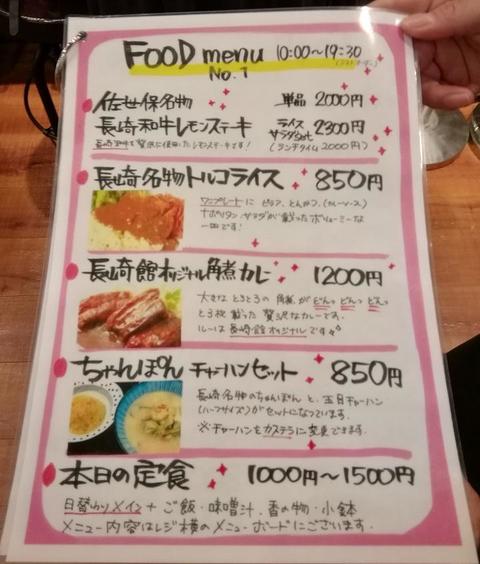 FOOD menu 10:00~19:30
No.1
(ラストオーダー)
佐世保名物 単品 2000円
長崎和牛レモンステーキ ライス サラダset 2300円
長崎和牛を贅沢に使用したレモンステーキです! (ランチタイム2000円)
長崎名物トルコライス 850円
ワンプレートに ピラフ、とんかつ、(カレーソース)
ナポリタン、サラダが載ったボリューミーな
一皿です!
長崎館オリジナル角煮カレー 1200円
大きなとろとろの角煮がどんっどんっどんっ
と3枚載った贅沢なカレーです。
ルーは長崎館オリジナルです
ちゃんぽん チャーハンセット 850円
長崎名物のちゃんぽんと、五目チャーハン
(ハーフサイズ)がセットになっています。
※チャーハンをカステラに変更できます。
本日の定食 1000円~1500円
日替わりメイン+ご飯・味噌汁・香の物・小鉢
メニュー内容はレジ横のメニューボードにございます。